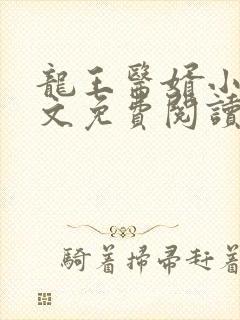 龍王醫婿小
文免費閱讀
騎着掃帚赶着